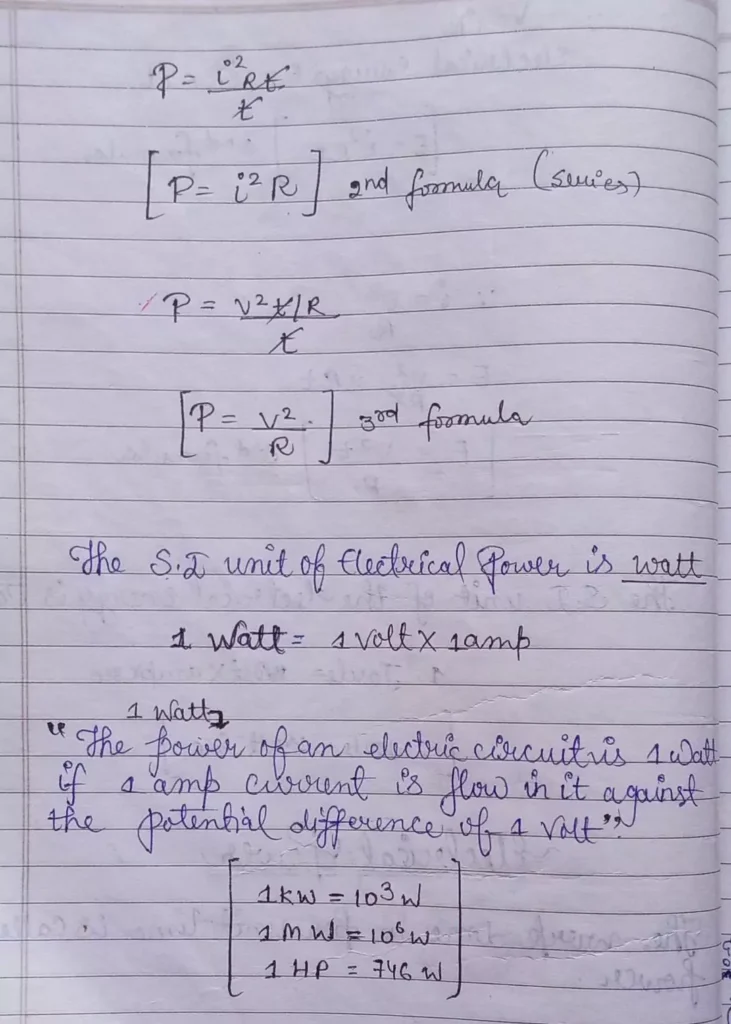 P = i²Rt
t
[P = i²R] 2nd formula (series)
P = V²t/R
t
[P = V²
R] 3rd formula
The S.I unit of Electrical Power is watt
1 Watt = 1 volt × 1 amp
1 Watt
"The power of an electric circuit is 1 Watt
if 1 amp current is flow in it against
the potential difference of 1 Volt"
1 kW = 10³ W
1 MW = 10⁶ W
1 HP = 746 W